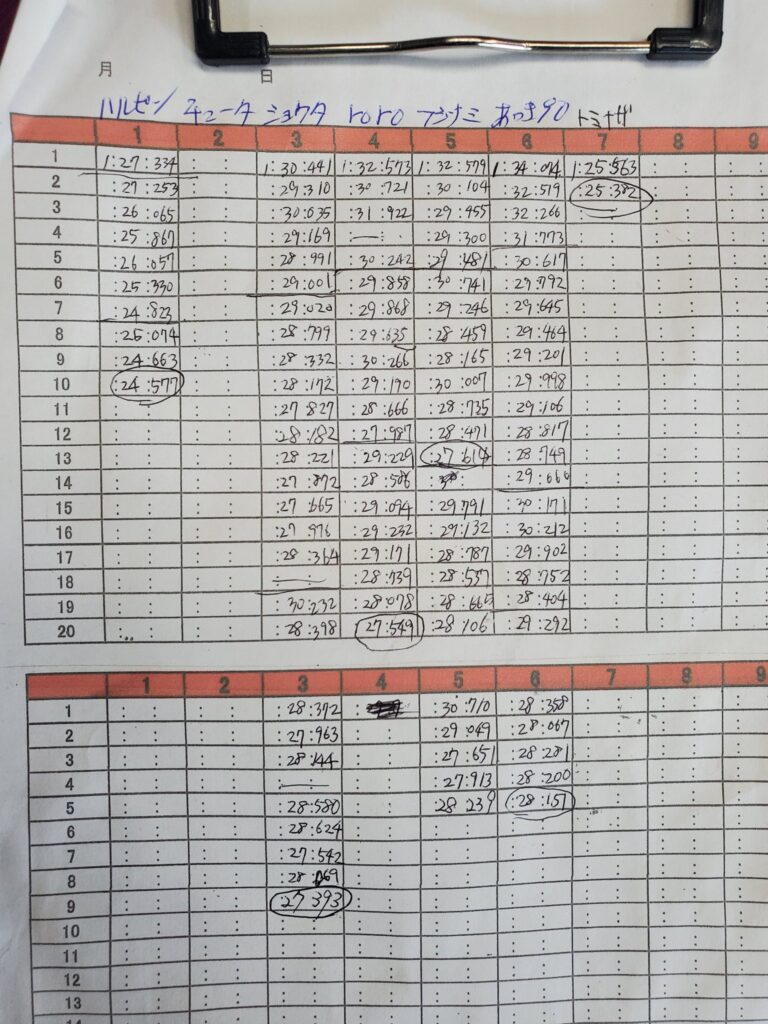 月 日
ハルピン チュータ ショウタ roro アシナミ あつき90 トミナガ
1 2 3 4 5 6 7 8 9
1 1:27:334 : : 1:30:441 1:32:573 1:32:579 1:34:074 1:25:563 : : : :
2 :27:253 : : :29:310 :30:721 :30:104 :32:519 :25:382 : : : :
3 :26:065 : : :30:035 :31:922 :29:455 :32:266 : : : :
4 :25:867 : : :29:169 —:— :29:300 :31:773 : : : : : :
5 :26:057 : : :28:991 :30:242 :29:481 :30:617 : : : : : :
6 :25:330 : : :29:001 :29:858 :30:741 :29:792 : : : : : :
7 :24:823 : : :29:020 :29:868 :29:246 :29:645 : : : : : :
8 :26:074 : : :28:799 :29:635 :28:459 :29:464 : : : : : :
9 :24:663 : : :28:332 :30:266 :28:165 :29:201 : : : : : :
10 :24:577 : : :28:172 :29:190 :30:007 :29:998 : : : : : :
11 : : : : :27:827 :28:666 :28:735 :29:106 : : : : : :
12 : : : : :28:182 :27:987 :28:471 :28:817 : : : : : :
13 : : : : :28:221 :29:229 :27:614 :28:749 : : : : : :
14 : : : : :27:872 :28:506 : :29:060 : : : : : :
15 : : : : :27:665 :29:094 :29:791 :30:171 : : : : : :
16 : : : : :27:976 :29:232 :29:132 :30:212 : : : : : :
17 : : : : :28:364 :29:171 :28:787 :29:902 : : : : : :
18 : : : : —:— :28:739 :28:537 :28:752 : : : : : :
19 : : : : :30:232 :28:078 :28:665 :28:404 : : : : : :
20 : : : : :28:398 :27:549 :28:106 :29:292 : : : : : :
1 2 3 4 5 6 7 8 9
1 : : : : :28:372 : :30:710 :28:358 : : : : : :
2 : : : : :27:963 : : :29:049 :28:067 : : : : : :
3 : : : : :28:144 : : :27:651 :28:281 : : : : : :
4 : : : : —:— : : :27:913 :28:200 : : : : : :
5 : : : : :28:580 : : :28:239 :28:151 : : : : : :
6 : : : : :28:624 : : : : : : : : : : : :
7 : : : : :27:542 : : : : : : : : : : : :
8 : : : : :28:069 : : : : : : : : : : : :
9 : : : : :27:393 : : : : : : : : : : : :
10 : : : : : : : : : : : : : : : : : :
11 : : : : : : : : : : : : : : : : : :
12 : : : : : : : : : : : : : : : : : :
13 : : : : : : : : : : : : : : : : : :